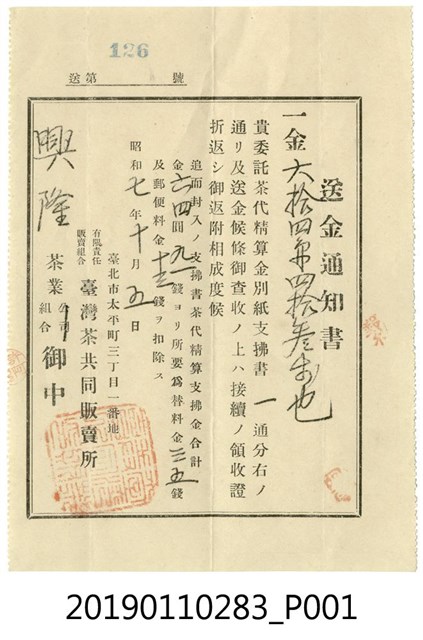 126
送第 號
送金通知書
一金六拾四円四拾叁戋也
貴委託茶代精算金別紙支拂書一通分右ノ
通リ及送金候條御査收ノ上ハ接續ノ領收證
折返シ御返附相成度候
追而封入ノ支拂書茶代精算支拂金合計
金六四圓九一錢ヨリ所要為替料金三五錢
及郵便料金十三錢ヲ扣除ス
昭和七年十月五日
臺北市太平町三丁目一番地
有限責任
販賣組合
臺灣茶共同販賣所
興隆茶業公司組合御中
20190110283_P001